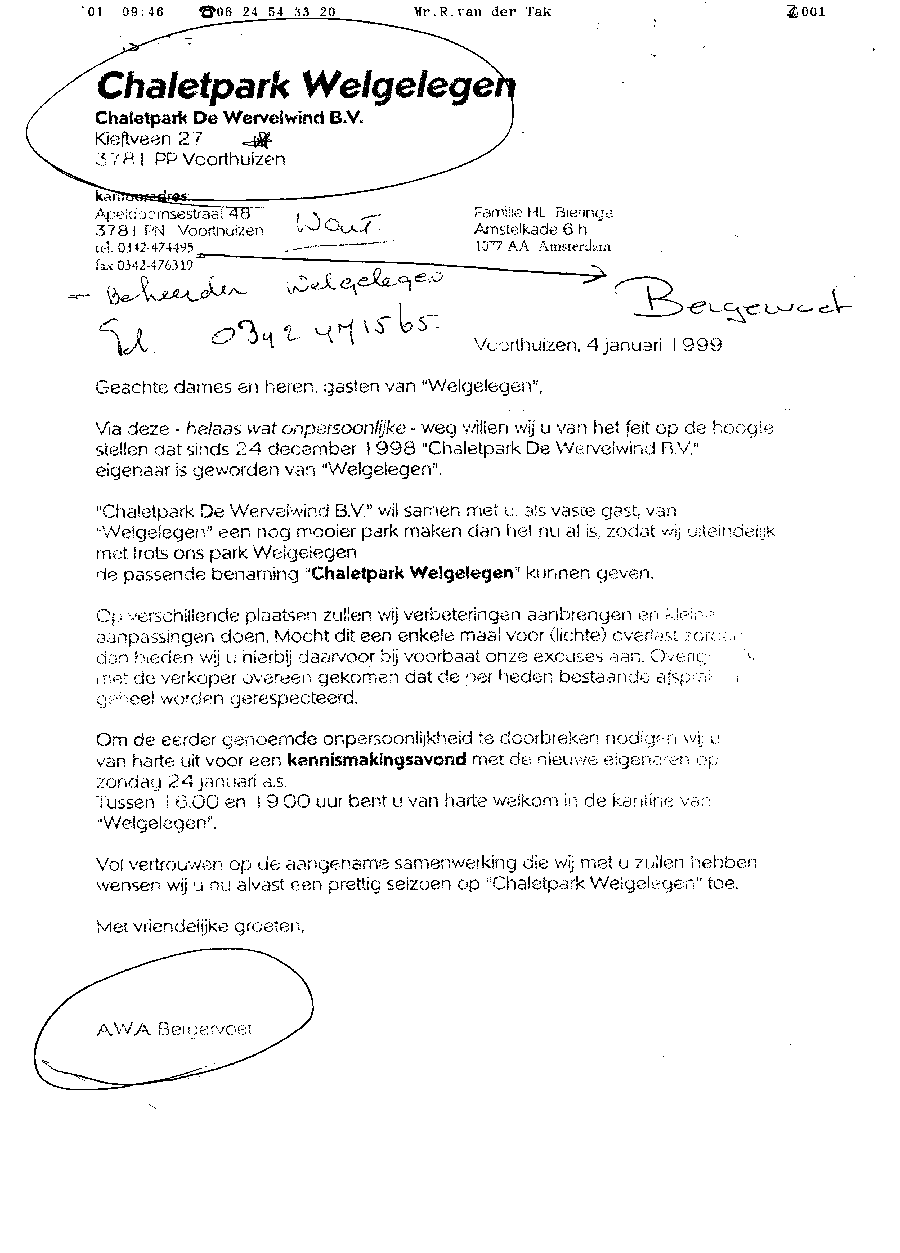 '01 09:46 ☎06 24 54 33 20 Mr.R.van der Tak 001
Chaletpark Welgelegen
Chaletpark De Wervelwind B.V.
Kieftveen 27
3781 PP Voorthuizen
kantooradres:
Apeldoornsestraat 48
3781 PN Voorthuizen
tel. 0342-474495
fax 0342-476319
Wout
Familie HL Bieringa
Amstelkade 6 h
1077 AA Amsterdam
- Beheerder Welgelegen
Tel. 0342 471565.
Bergevoet
Voorthuizen, 4 januari 1999
Geachte dames en heren, gasten van "Welgelegen",
Via deze - helaas wat onpersoonlijke - weg willen wij u van het feit op de hoogte
stellen dat sinds 24 december 1998 "Chaletpark De Wervelwind B.V."
eigenaar is geworden van "Welgelegen".
"Chaletpark De Wervelwind B.V." wil samen met u, als vaste gast, van
"Welgelegen" een nog mooier park maken dan het nu al is, zodat wij uiteindelijk
met trots ons park Welgelegen
de passende benaming "Chaletpark Welgelegen" kunnen geven.
Op verschillende plaatsen zullen wij verbeteringen aanbrengen en kleine
aanpassingen doen. Mocht dit een enkele maal voor (lichte) overlast zorgen
dan bieden wij u hierbij daarvoor bij voorbaat onze excuses aan.
met de verkoper overeen gekomen dat de per heden bestaande
geheel worden gerespecteerd.
Om de eerder genoemde onpersoonlijkheid te doorbreken nodigen wij u
van harte uit voor een kennismakingsavond met de nieuwe eigenaren op
zondag 24 januari a.s.
Tussen 16.00 en 19.00 uur bent u van harte welkom in de kantine van
"Welgelegen".
Vol vertrouwen op de aangename samenwerking die wij met u zullen hebben
wensen wij u nu alvast een prettig seizoen op "Chaletpark Welgelegen" toe.
Met vriendelijke groeten,
AWA Bergervoet